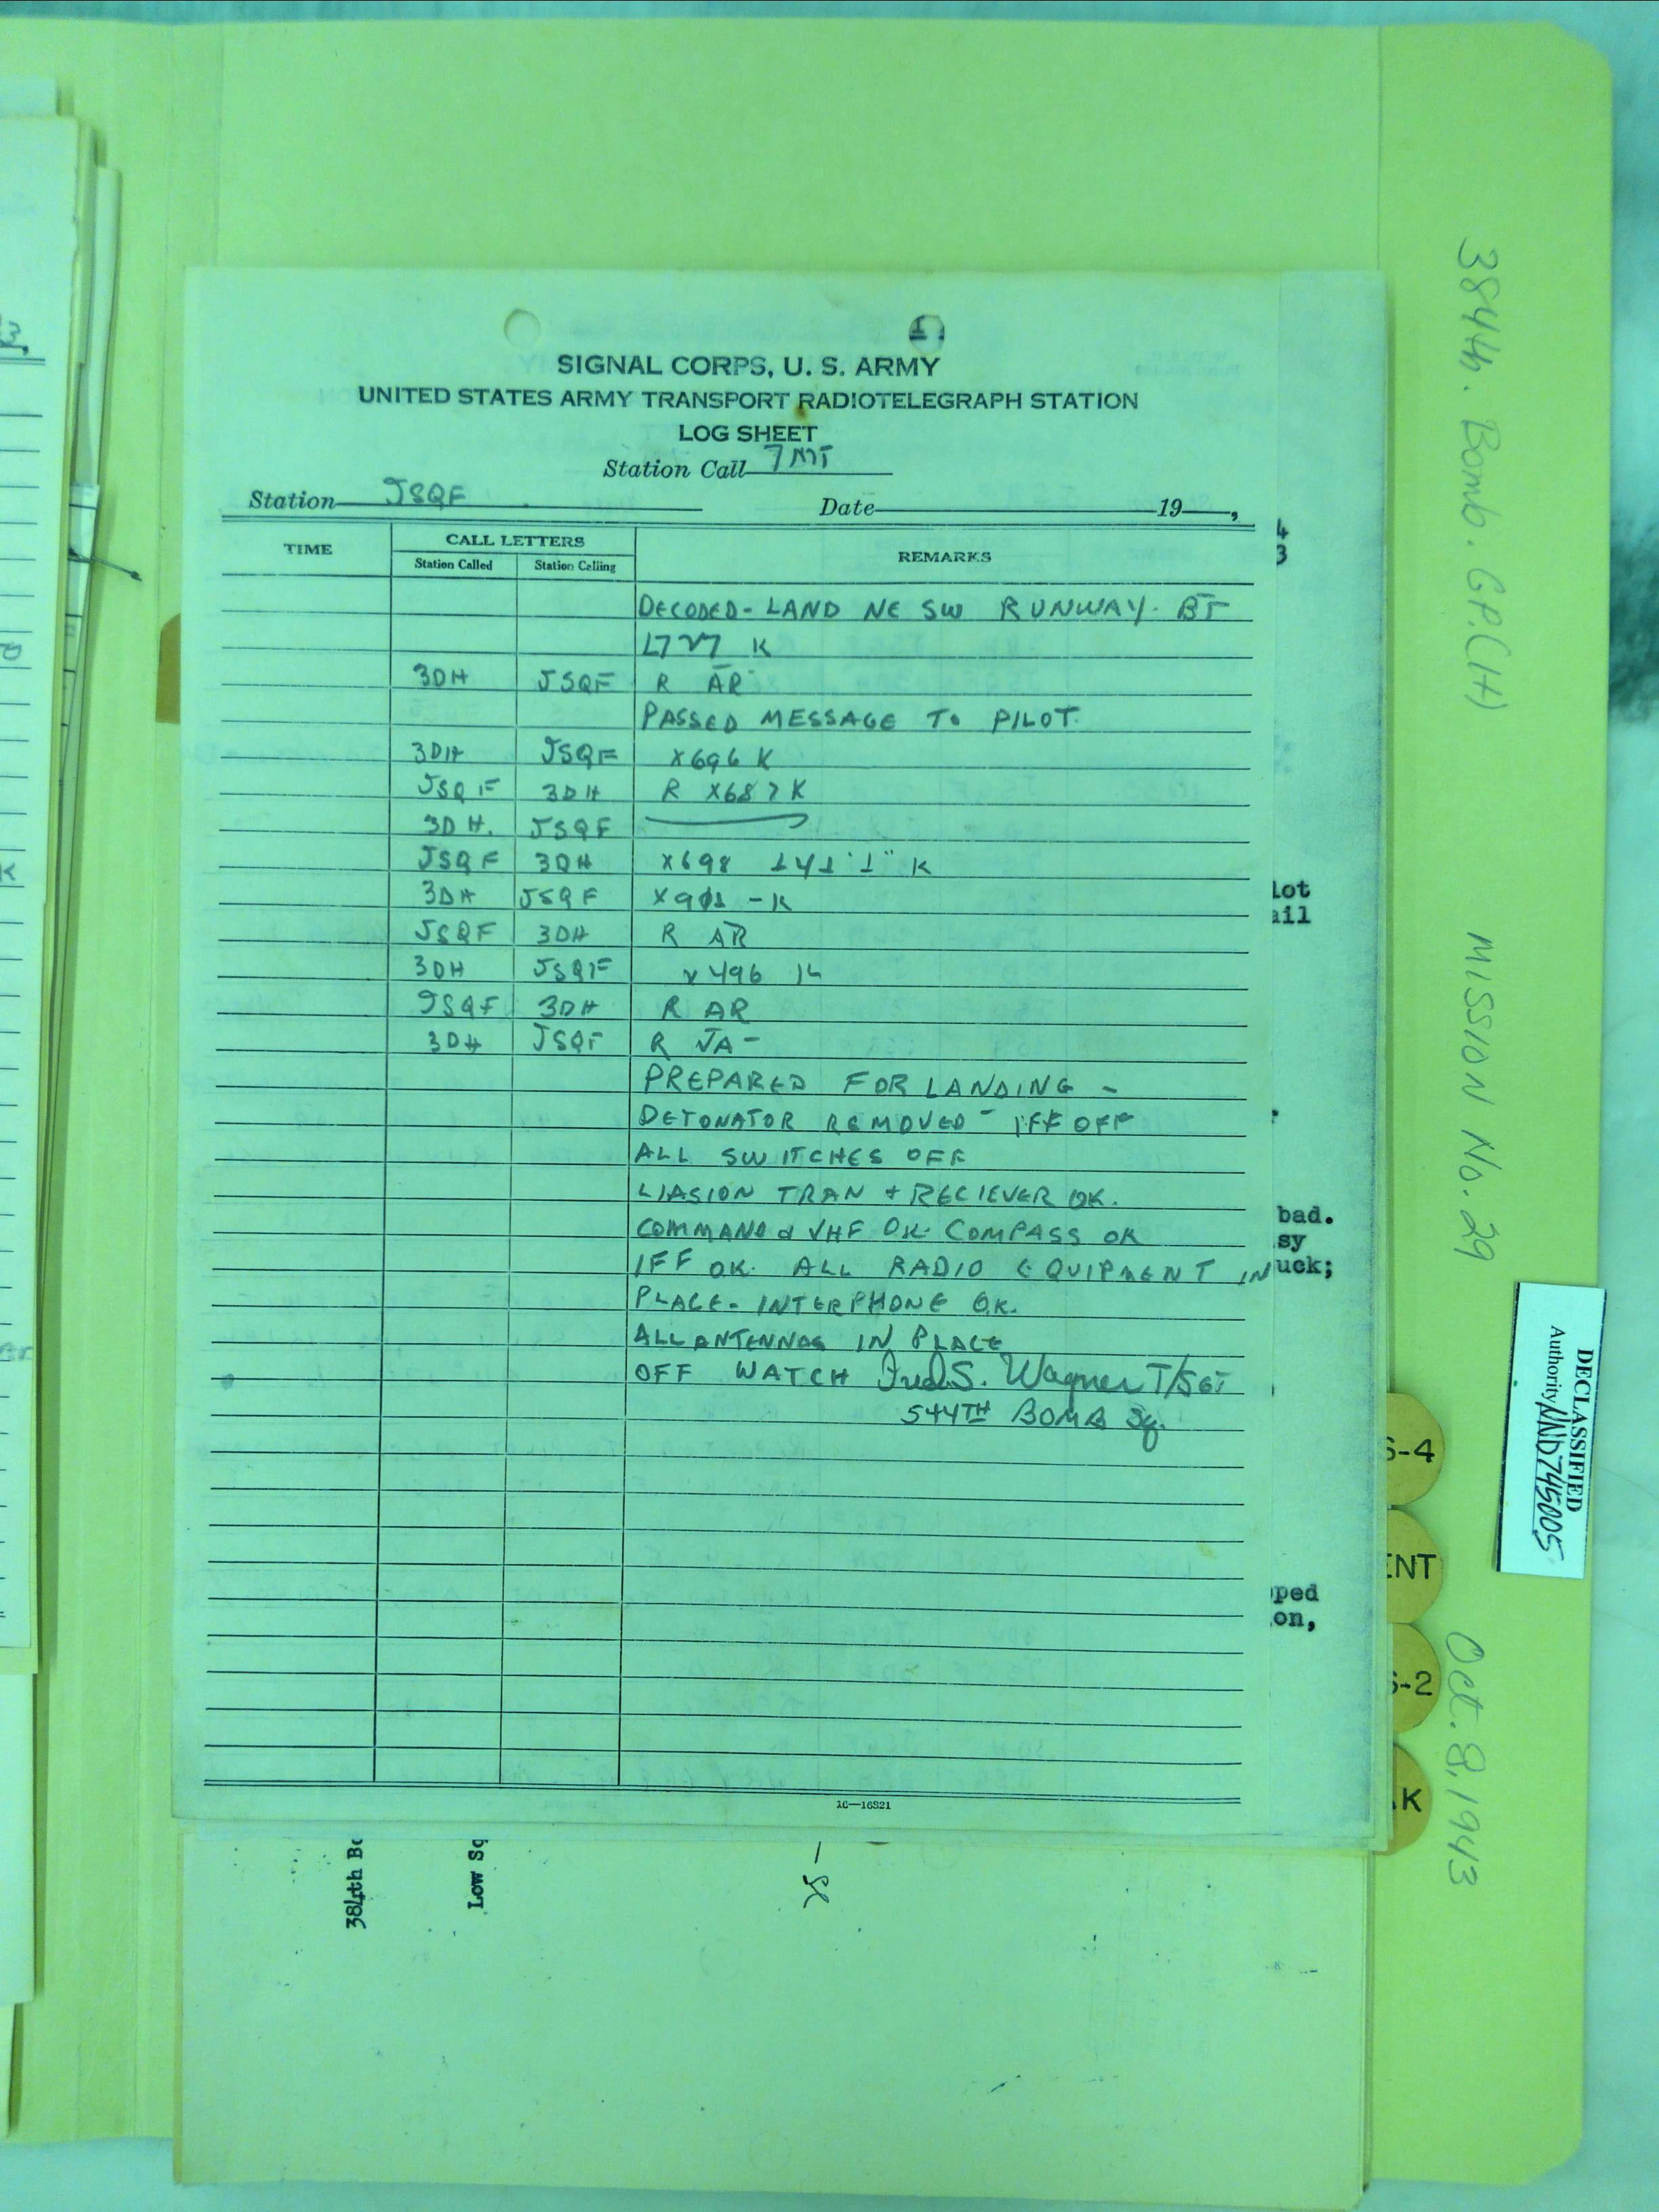 SIGNAL CORPS, U. S. ARMY
UNITED STATES ARMY TRANSPORT RADIOTELEGRAPH STATION
LOG SHEET
Station Call 7MT
Station JSQF Date 19 ,
TIME CALL LETTERS REMARKS
Station Called Station Calling
DECODED - LAND NE SW RUNWAY. BT
1727 K
3DH JSQF R AR
PASSED MESSAGE TO PILOT.
3DH JSQF X696 K
JSQF 3DH R X687 K
3DH. JSQF
JSQF 3DH X698 141°1" K
3DH JSQF X901 - K
JSQF 3DH R AR
3DH JSQF X496 K
JSQF 3DH R AR
3DH JSQF R VA -
PREPARED FOR LANDING -
DETONATOR REMOVED - IFF OFF
ALL SWITCHES OFF
LIASION TRAN + RECIEVER OK.
COMMAND & VHF OK. COMPASS OK
IFF OK. ALL RADIO EQUIPMENT IN
PLACE - INTERPHONE O.K.
ALL ANTENNAS IN PLACE
OFF WATCH Fred S. Wagner T/SGT
544TH BOMB Sq.
16—16821
384th. Bomb. GP.(H) MISSION No. 29 Oct. 8, 1943
DECLASSIFIED
Authority NND745005
4
3
lot
ail
bad.
sy
uck;
pped
on,
S-4
ENT
S-2
K
384th Bo
Low Sq